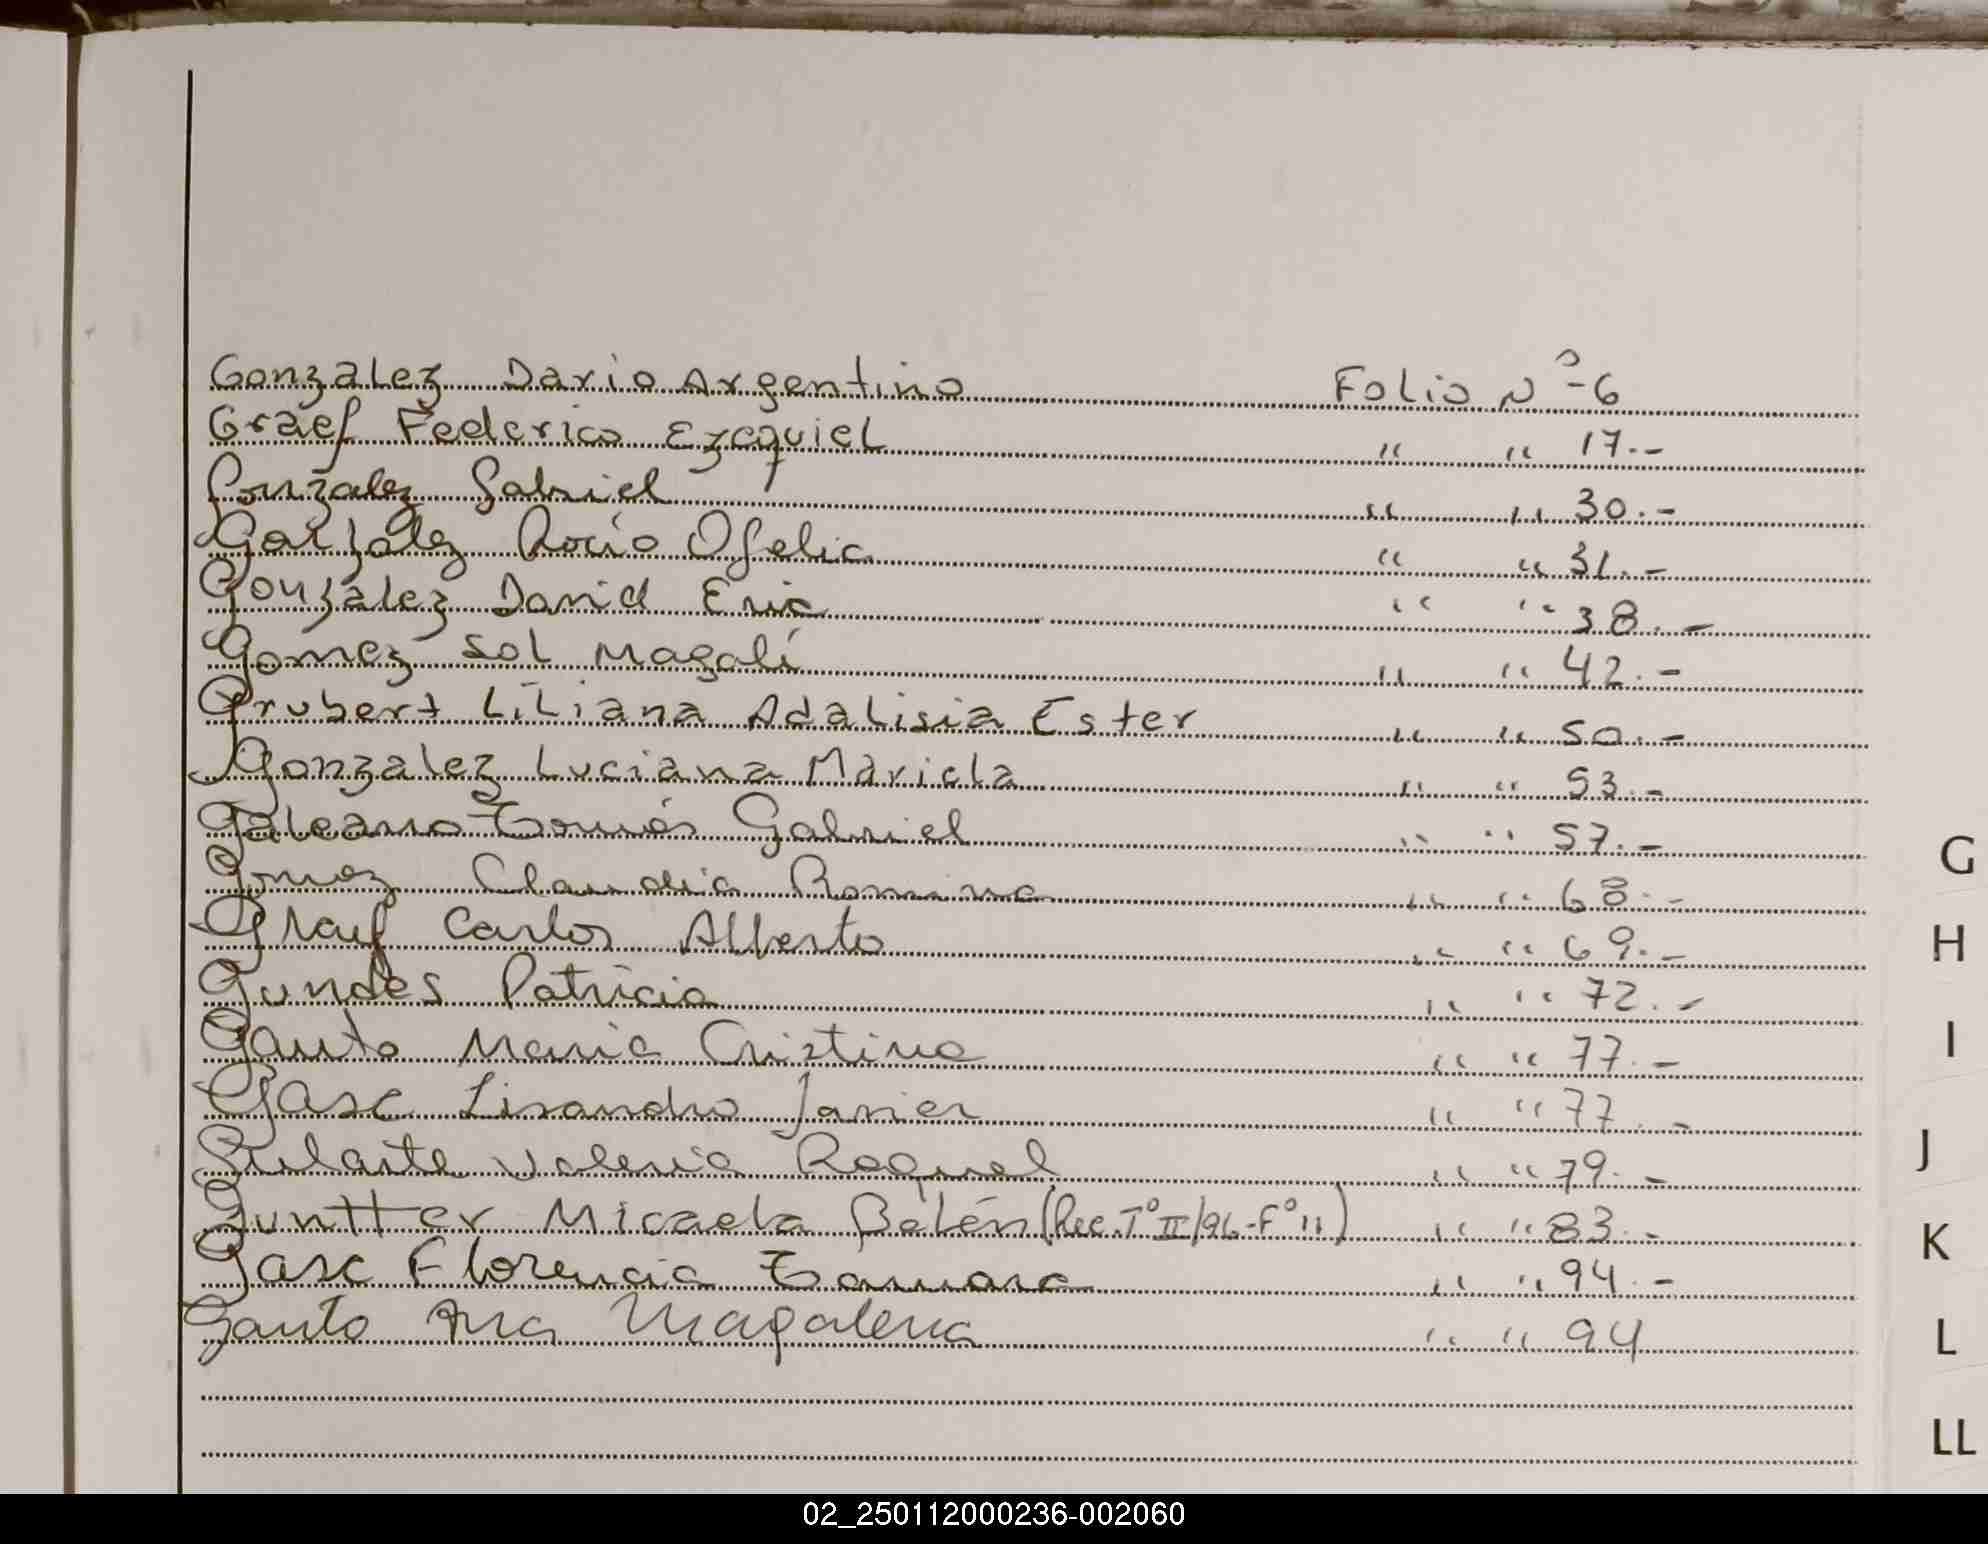 Gonzalez Dario Argentino Folio Nº-6
Graef Federico Ezequiel " " 17.-
Gonzalez Gabriel " " 30.-
Gonzalez Rocío Ofelia " " 31.-
Gonzalez David Eric " " 38.-
Gomez Sol Magalí " " 42.-
Grubert Liliana Adalisia Ester " " 50.-
Gonzalez Luciana Mariela " " 53.-
Galeano Tomás Gabriel " " 57.-
Gomez Claudia Romina " " 68.-
Graef Carlos Alberto " " 69.-
Gundes Patricia " " 72.-
Gauto Maria Cristina " " 77.-
Gasc Lisandro Javier " " 77.-
Valeria Raquel " " 79.-
Guntter Micaela Belén (Rec. Tº II/96-Fº 11) " " 83.-
Gasc Florencia Tamara " " 94.-
Gauto Ana Magalena " " 94
G
H
I
J
K
L
LL
02_250112000236-002060